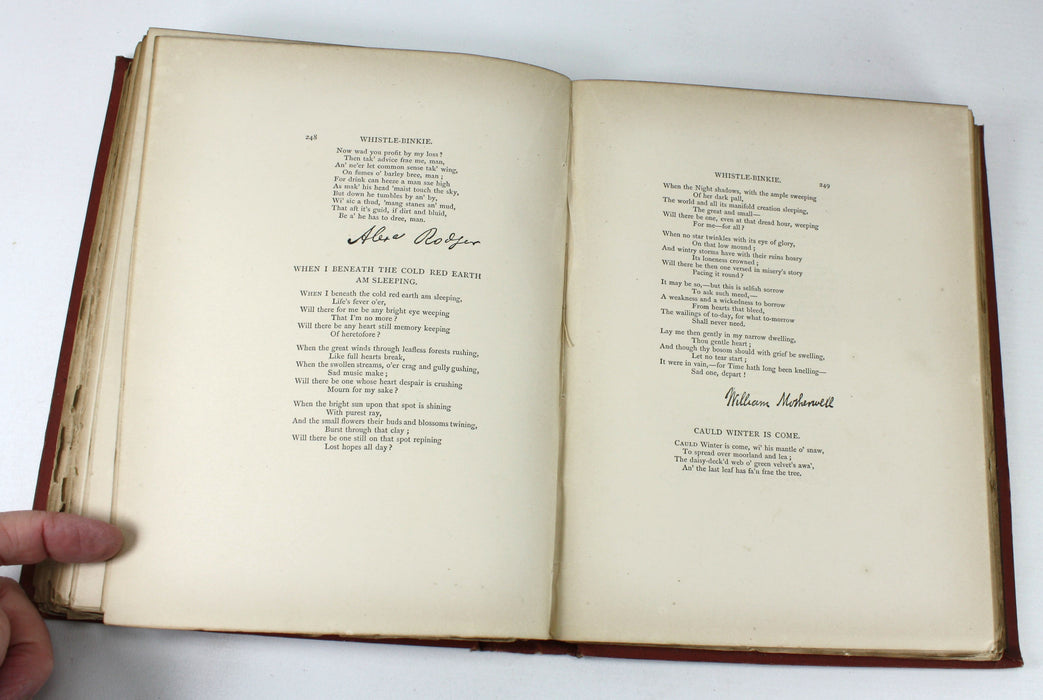 248
WHISTLE-BINKIE.
Now wad you profit by my loss?
Then tak' advice frae me, man,
An' ne'er let common sense tak' wing,
On fumes o' barley bree, man;
For drink can heeze a man sae high
As mak' his head 'maist touch the sky,
But down he tumbles by an' by,
Wi' sic a thud, 'mang stanes an' mud,
That aft it's guid, if dirt and bluid,
Be a' he has to dree, man.
Alexr Rodger
WHEN I BENEATH THE COLD RED EARTH
AM SLEEPING.
WHEN I beneath the cold red earth am sleeping,
Life's fever o'er,
Will there for me be any bright eye weeping
That I'm no more?
Will there be any heart still memory keeping
Of heretofore?
When the great winds through leafless forests rushing,
Like full hearts break,
When the swollen streams, o'er crag and gully gushing,
Sad music make;
Will there be one whose heart despair is crushing
Mourn for my sake?
When the bright sun upon that spot is shining
With purest ray,
And the small flowers their buds and blossoms twining,
Burst through that clay;
Will there be one still on that spot repining
Lost hopes all day?
WHISTLE-BINKIE.
249
When the Night shadows, with the ample sweeping
Of her dark pall,
The world and all its manifold creation sleeping,
The great and small—
Will there be one, even at that dread hour, weeping
For me—for all?
When no star twinkles with its eye of glory,
On that low mound;
And wintry storms have with their ruins hoary
Its loneness crowned;
Will there be then one versed in misery's story
Pacing it round?
It may be so,—but this is selfish sorrow
To ask such meed,—
A weakness and a wickedness to borrow
From hearts that bleed,
The wailings of to-day, for what to-morrow
Shall never need.
Lay me then gently in my narrow dwelling,
Thou gentle heart;
And though thy bosom should with grief be swelling,
Let no tear start;
It were in vain,—for Time hath long been knelling—
Sad one, depart!
William Motherwell
CAULD WINTER IS COME.
CAULD Winter is come, wi' his mantle o' snaw,
To spread over moorland and lea;
The daisy-deck'd web o' green velvet's awa',
An' the last leaf has fa'n frae the tree.